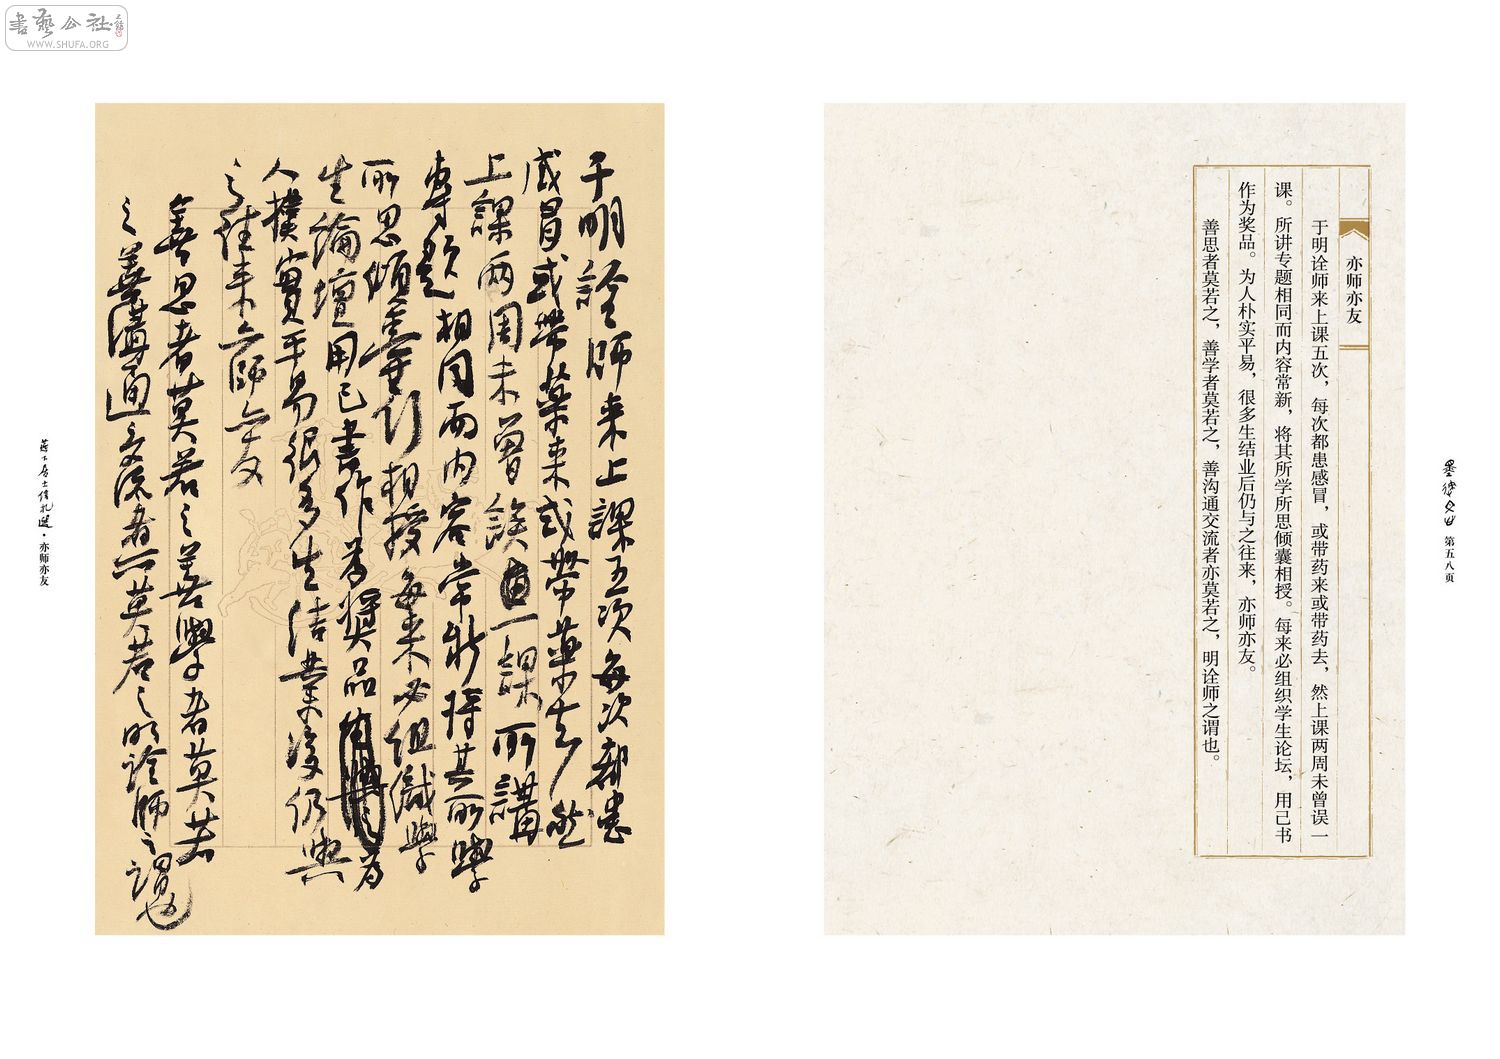 書藝公社
WWW.SHUFA.ORG
第五八页
亦师亦友
于明诠师来上课五次，每次都患感冒，或带药来或带药去，然上课两周未曾误一
课。所讲专题相同而内容常新，将其所学所思倾囊相授。每来必组织学生论坛，用己书
作为奖品。为人朴实平易，很多生结业后仍与之往来，亦师亦友。
善思者莫若之，善学者莫若之，善沟通交流者亦莫若之，明诠师之谓也。
于明詮師来上課五次每次都患
感冒或帶藥来或帶藥去然
上課兩周未曾誤一課所講
專題相同而内容常新將其所學
所思傾囊相授每来必组織學
生論壇用己書作為獎品为
人樸實平易很多生结業後仍與
之往来亦師亦友
善思者莫若之善學者莫若
之善溝通交流者亦莫若之明詮師之謂也
居士信札選·亦师亦友